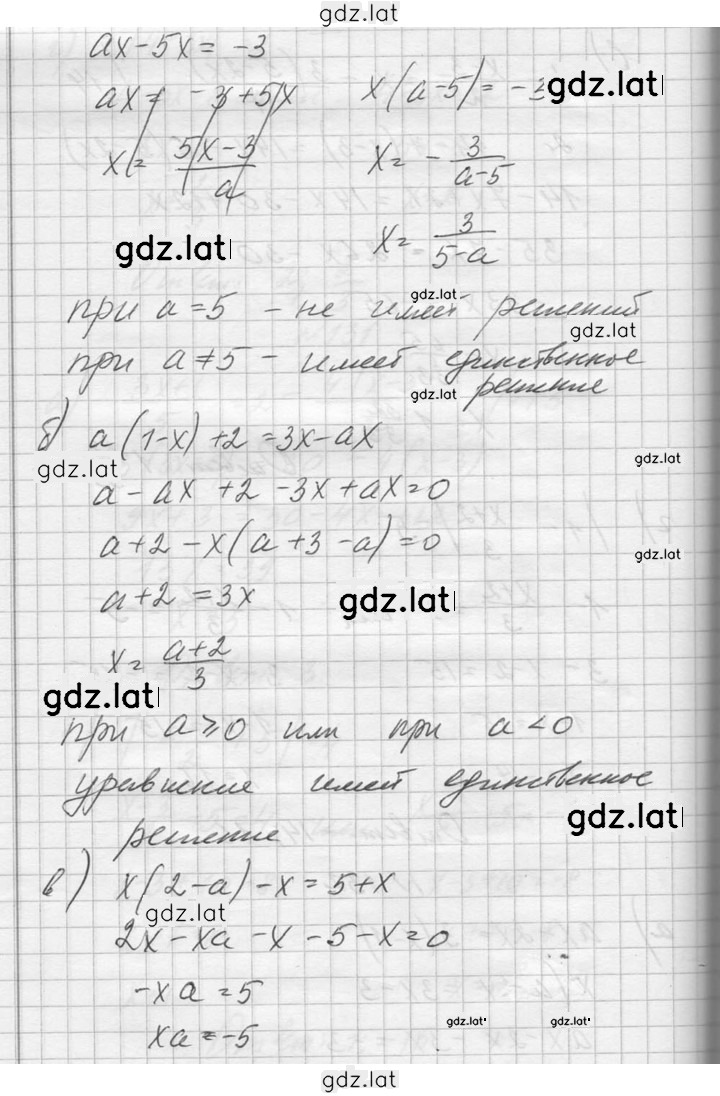 gdz.lat
ax-5x = -3
ax = -3+5x
x(a-5) = -3
gdz.lat
x = 5x-3/a
x = - 3/a-5
gdz.lat
x = 3/5-a
при a=5 - не имеет решений
gdz.lat
gdz.lat
при a≠5 - имеет единственное
gdz.lat
решение
б) a(1-x)+2 = 3x-ax
gdz.lat
gdz.lat
a - ax + 2 - 3x + ax = 0
a+2 - x(a+3-a) = 0
gdz.lat
a+2 = 3x
gdz.lat
x = a+2/3
gdz.lat
при a ≥ 0 или при a < 0
уравнение имеет единственное
gdz.lat
решение
в) x(2-a) - x = 5+x
gdz.lat
2x - xa - x - 5 - x = 0
-xa = 5
gdz.lat
gdz.lat
xa = -5
gdz.lat